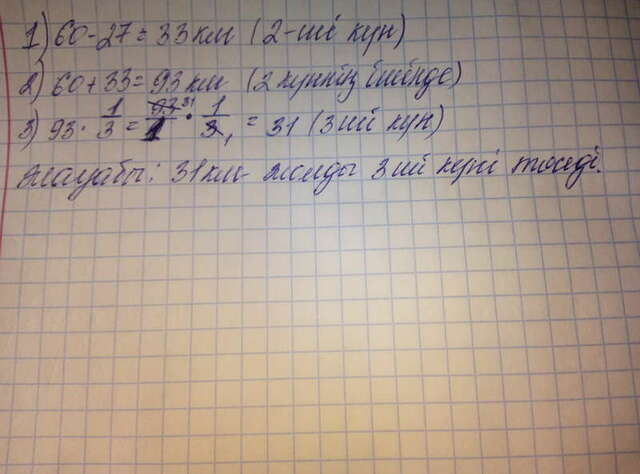 1) 60 - 27 = 33 км (2-ші күн)
2) 60 + 33 = 93 км (2 күннің ішінде)
3) 93 · 1/3 = 93 31/1 · 1/3 1 = 31 (3 ші күн)
Жауабы: 31 км жолды 3 ші күні төседі.